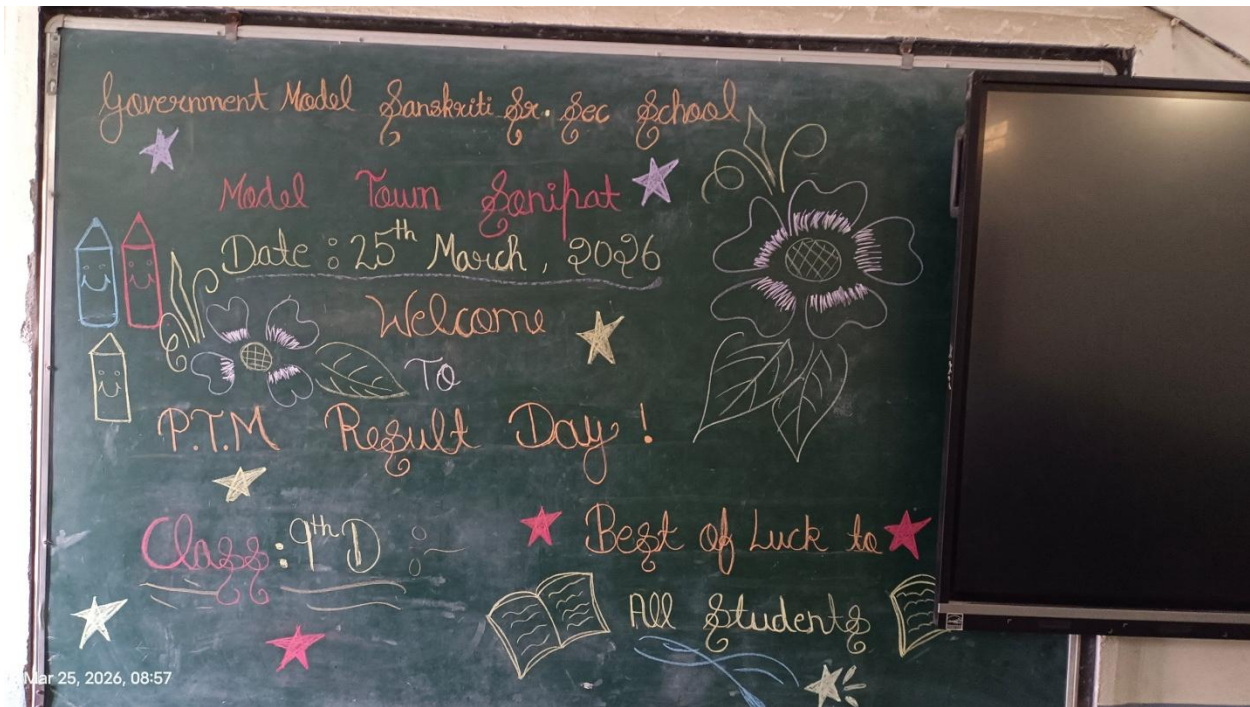 Government Model Sanskriti Sr. Sec School
Model Town Sonipat
Date : 25th March, 2026
Welcome
To
P.T.M Result Day !
Class : 9th D :-
Best of Luck to
All Students
Mar 25, 2026, 08:57